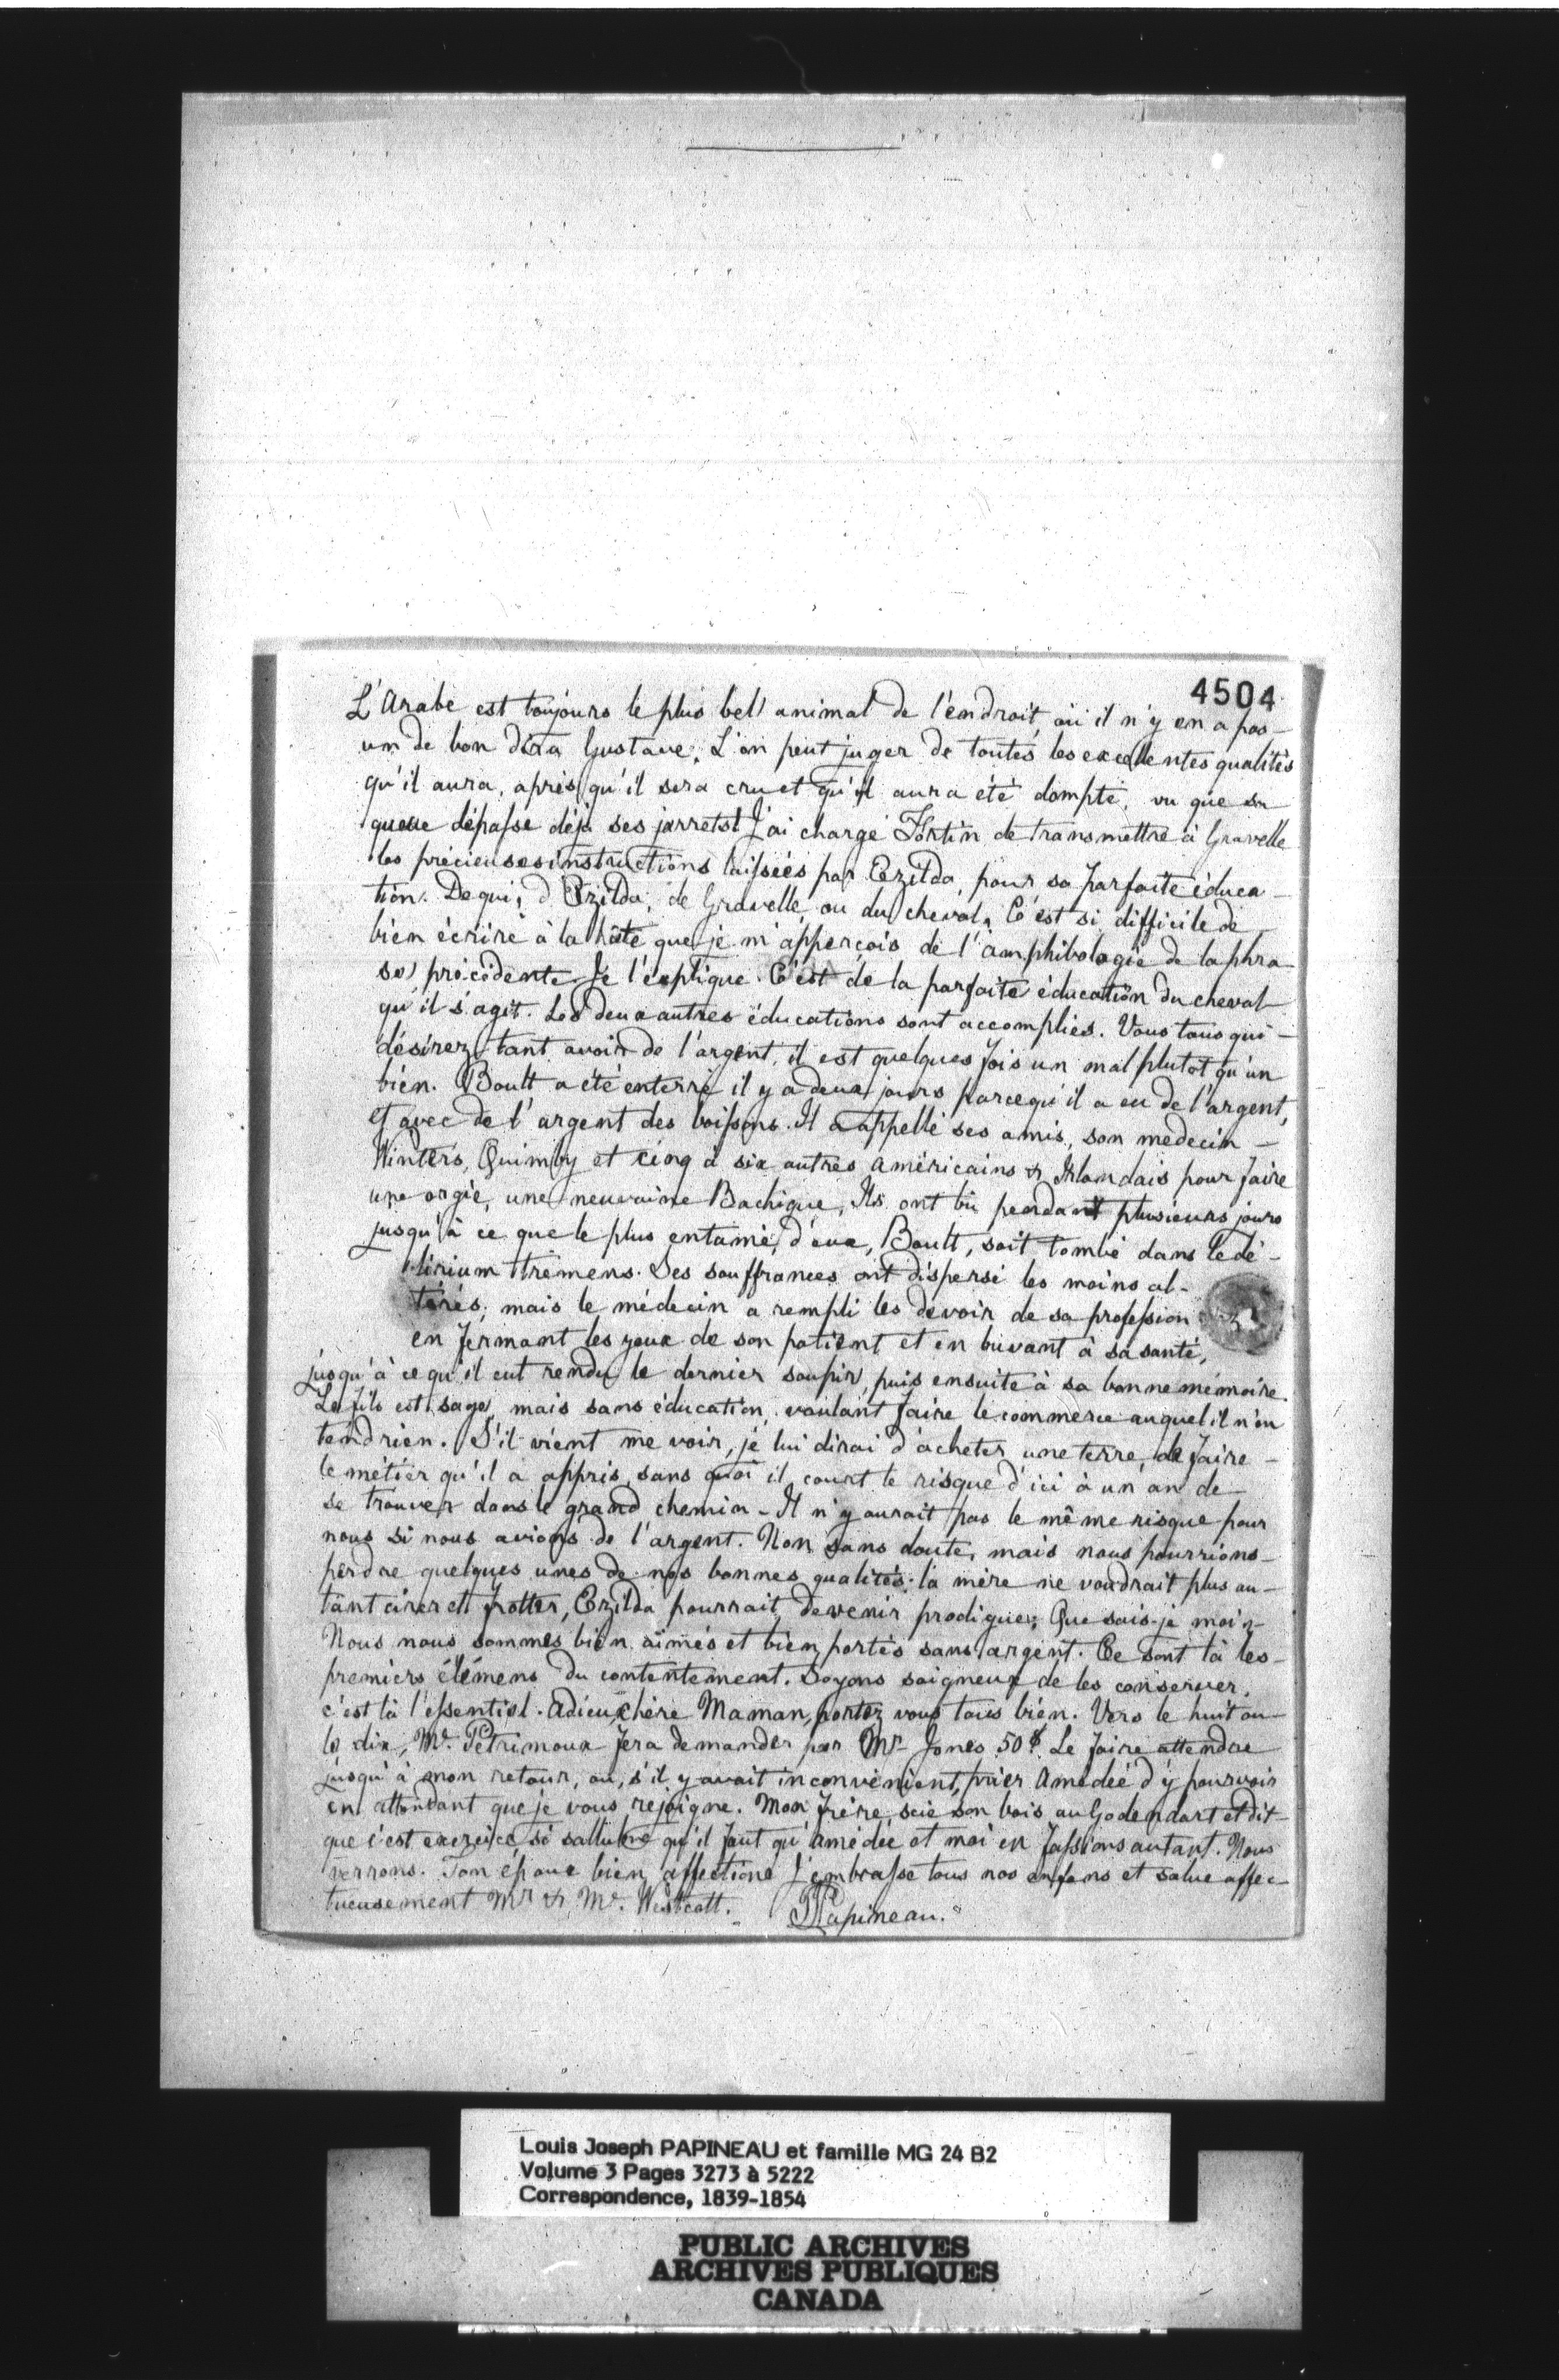 4504
L'Arabe est toujours le plus bel animal de l'endroit, où il n'y en a pas
un de bon dira Gustave. L'on peut juger de toutes les excellentes qualités
qu'il aura, après qu'il sera cru et qu'il aura été dompté, vu que sa
queue dépasse déjà ses jarrets. J'ai chargé Fortin de transmettre à Gravelle
les précieuses instructions laissées par Ezilda, pour sa parfaite éduca-
tion. De qui, d'Ezilda, de Gravelle, ou du cheval. C'est si difficile de
bien écrire à la hâte que je m'apperçois de l'amphibologie de la phra
se précédente. Je l'explique. C'est de la parfaite éducation du cheval
qu'il s'agit. Les deux autres éducations sont accomplies. Vous tous qui
désirez tant avoir de l'argent, il est quelques fois un mal plutot qu'un
bien. Boult a été enterré il y a deux jours parcequ'il a eu de l'argent,
et avec de l'argent des boissons. Il a appellé ses amis, son medecin
Winters, Quimby et cinq à six autres Américains & Irlandais pour faire
une orgie, une neuvaine Bachique, Ils ont bu pendant plusieurs jours
jusqu'à ce que le plus entamé d'eux, Boult, soit tombé dans le dé-
lirium tremens. Ses souffrances ont dispersé les moins al-
térés; mais le médecin a rempli les devoir de sa profession
en fermant les yeux de son patient et en buvant à sa santé,
jusqu'à ce qu'il eut rendu le dernier soupir, puis ensuite à sa bonne mémoire.
Le fils est sage, mais sans éducation, voulant faire le commerce auquel il n'en
tend rien. S'il vient me voir, je lui dirai d'acheter une terre, de faire
le métier qu'il a appris, sans quoi il court le risque d'ici à un an de
se trouver dans le grand chemin - Il n'y aurait pas le même risque pour
nous si nous avions de l'argent. Non sans doute, mais nous pourrions
perdre quelques unes de nos bonnes qualités; la mère ne voudrait plus au-
tant cirer et frotter, Ezilda pourrait devenir prodigue; Que sais-je moi?
Nous nous sommes bien aimés et bien portés sans argent. Ce sont là les
premiers élémens du contentement. Soyons soigneux de les conserver,
c'est là l'essentiel. Adieu, chère Maman, portez vous tous bien. Vers le huit ou
le dix, Mr. Petrimoux fera demander par Mr Jones 50$. Le faire attendre
jusqu'à mon retour, ou, s'il y avait inconvénient, prier Amédée d'y pourvoir
en attendant que je vous rejoigne. Mon frère scie son bois au Godendart et dit
que c'est exercice si qu'il faut qu'Amédée et moi en fassions autant. Nous
verrons. Ton époux bien affectioné J'embrasse tous nos enfans et salue affec-
tueusement Mr & Me. Westcott. LJPapineau.
Louis Joseph PAPINEAU et famille MG 24 B2
Volume 3 Pages 3273 à 5222
Correspondence, 1839-1854
PUBLIC ARCHIVES
ARCHIVES PUBLIQUES
CANADA